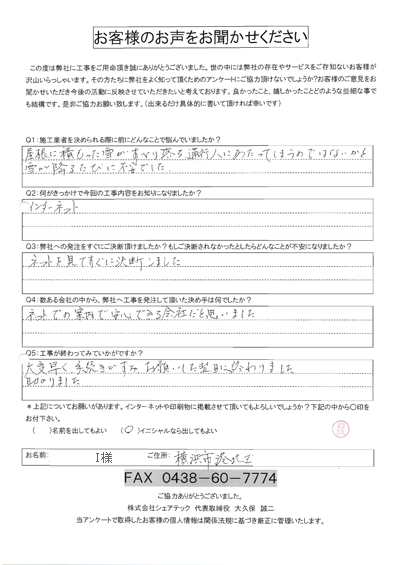 お客様のお声をお聞かせください
この度は弊社に工事をご用命頂き誠にありがとうございました。世の中には弊社の存在やサービスをご存知ないお客様が
沢山いらっしゃいます。その方たちに弊社をよく知って頂くためのアンケートにご協力頂けないでしょうか？お客様のご意見をお
聞かせいただき今後の活動に反映させていただきたいと考えております。良かったこと、嬉しかったことどのような些細な事で
も結構です。是非ご協力お願い致します。（出来るだけ具体的に書いて頂ければ幸いです）
Q1：施工業者を決められる際に前にどんなことで悩んでいましたか？
屋根に積もった雪がすべり落ち通行人にあたってしまうのではないかと
雪が降るたびに不安でした
Q2：何がきっかけで今回の工事内容をお知りになりましたか？
インターネット
Q3：弊社への発注をすぐにご決断頂けますか？もしご決断されなかったとしたらどんなことが不安になりましたか？
ネットを見てすぐに決断しました
Q4：数ある会社の中から、弊社へ工事を発注して頂いた決め手は何でしたか？
ネットでの案内で安心できる会社だと思いました
Q5：工事が終わってみていかがですか？
大変早く手続きがすみ、お願いした翌日に終わりました
助かりました
＊上記についてお願いがあります。インターネットや印刷物に掲載させて頂いてもよろしいでしょうか？下記の中から〇印を
お付下さい。
（　）名前を出してもよい （〇）イニシャルなら出してもよい
お名前： I様 ご住所： 横浜市港北区
FAX 0438-60-7774
ご協力ありがとうございました。
株式会社シェアテック 代表取締役 大久保 誠二
当アンケートで取得したお客様の個人情報は関係法規に基づき厳正に管理いたします。